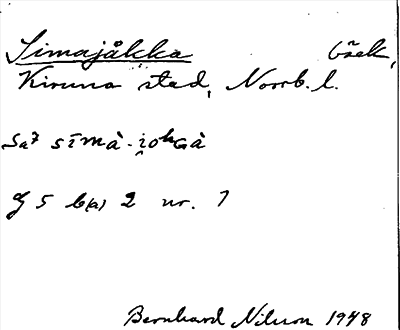 Simajåkka bäck,
Kiruna stad, Norrb. l.
sīmà-i̯oᵏGà
G 5 b(a) 2 nr. 7
Bernhard Nilsson 1948